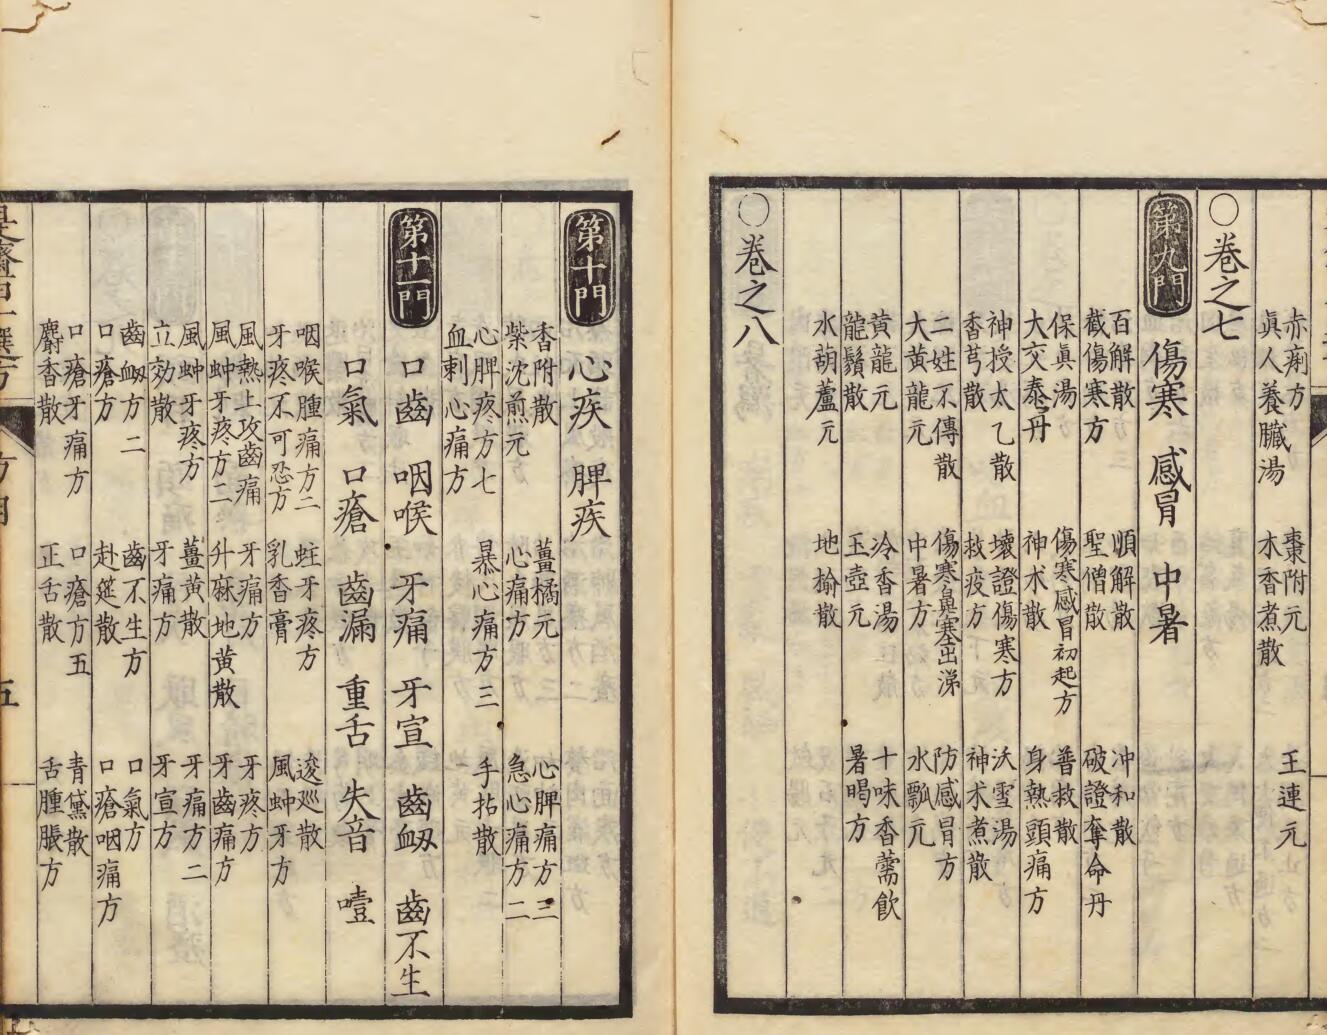 赤痢方 棗附元 王連元
眞人養臟湯 木香煮散
〇卷之七
第九門 傷寒 感冒 中暑
百解散 順解散 冲和散
截傷寒方 聖僧散 破證奪命丹
保眞湯 傷寒感冒初起方 普救散
大交泰丹 神朮散 身熱頭痛方
神授太乙散 壞證傷寒方 沃雪湯
香芎散 救疫方 神朮煮散
二姓不傳散 傷寒鼻塞出涕 防感冒方
大黃龍元 中暑方 水瓢元
黃龍元 冷香湯 十味香薷飮
龍鬚散 玉壺元 暑暍方
水葫蘆元 地楡散
〇卷之八
第十門 心疾 脾疾
香附散 薑橘元 心脾痛方三
紫沈煎元 心痛方 急心痛方二
心脾疼方七 暴心痛方三 手拈散
血刺心痛方
第十一門 口齒 咽喉 牙痛 牙宣 齒衂 齒不生
口氣 口瘡 齒漏 重舌 失音 噎
咽喉腫痛方二 蛀牙疼方 逡巡散
牙疼不可忍方 乳香膏 風蚛牙方
風熱上攻齒痛 牙痛方 牙疼方
風蚛牙疼方二 升麻地黃散 牙齒痛方
風蚛牙疼方 薑黃散 牙痛方二
立効散 牙痛方 牙宣方
齒衂方二 齒不生方 口氣方
口瘡方 赴筵散 口瘡咽痛方
口瘡牙痛方 口瘡方五 青黛散
麝香散 正舌散 舌腫脹方
五